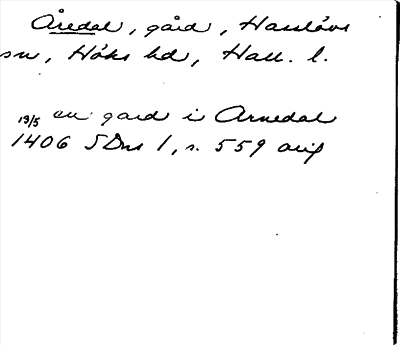 Åredal, gård, Hasslövs
sn, Höks hd, Hall. l.
19/5 en gard i Arnedal
1406 SDns 1, s. 559 orig